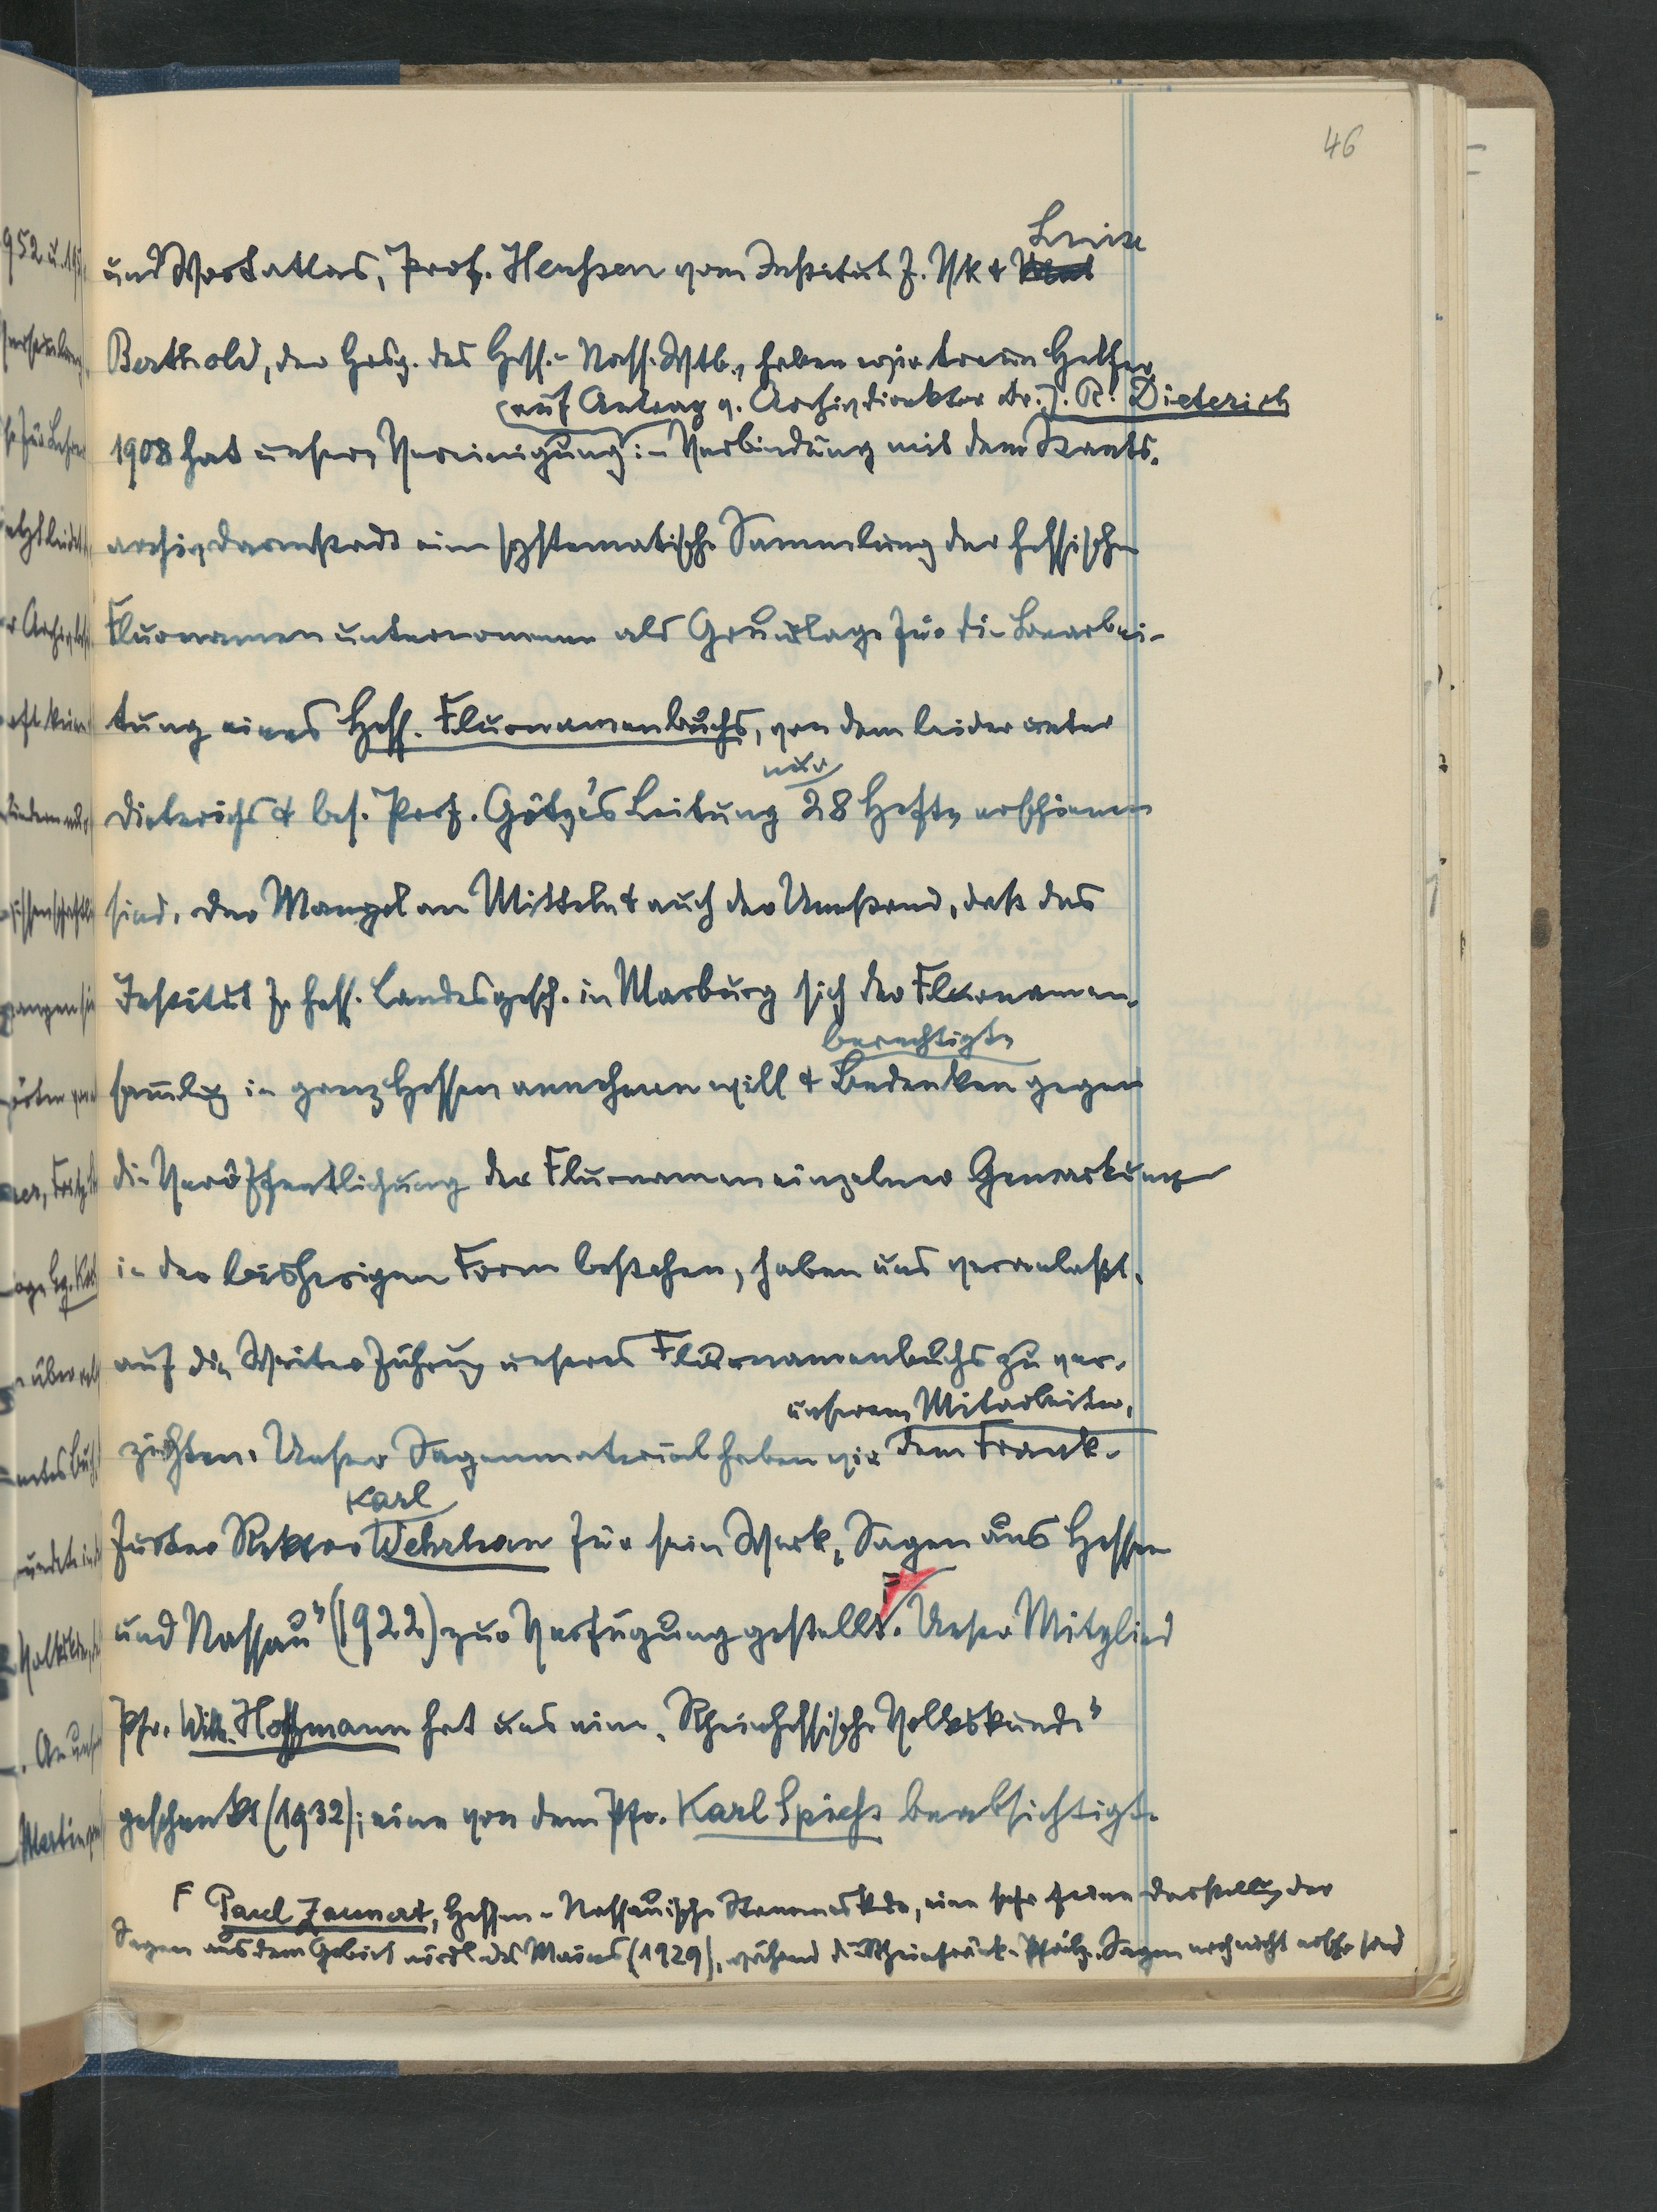 46
Luise
und Wortatlas, Prof. Henßen vom Institut f. Vk &
Berthold, der Hrsg. des Hess.-Nass. Wtb., haben wir treue Helfer.
(auf Antrag v. Archivdirektor Dr. J. R. Dieterich
1908 hat unsere Vereinigung in Verbindung mit dem Staats-
archiv Darmstadt eine systematische Sammlung der hessischen
Flurnamen unternommen als Grundlage für die Bearbei-
tung eines Hess. Flurnamenbuchs, von dem leider unter
nur
Dieterichs & bes. Prof. Götze's Leitung 28 Hefte erschienen
sind. Der Mangel an Mitteln & auch der Umstand, daß das
Institut f. hess. Landesgesch. in Marburg sich der Flurnamen-
berechtigte
sammlg in ganz Hessen annehmen will & Bedenken gegen
die Veröffentlichung der Flurnamen einzelner Gemarkungen
in der bisherigen Form bestehen, haben uns veranlaßt,
auf die Weiterführung unseres Flurnamenbuchs zu ver-
unserem Mitarbeiter,
zichten. Unser Sagenmaterial haben wir dem Frank-
Karl
furter Rektor Wehrhan für sein Werk „Sagen aus Hessen
und Nassau" (1922) zur Verfügung gestellt. F Unser Mitglied
Pfr. Wilh. Hoffmann hat uns eine „Rheinhessische Volkskunde"
geschenkt (1932); eine von dem Pfr. Karl Spieß beabsichtigte
F Paul Zaunert, Hessen-Nassauische Stammeskde, eine sehr feine Darstellg der
Sagen aus dem Gebiet nördl. des Mains (1929), während die Rheinfränk.-Pfälz. Sagen noch nicht ersch. sind